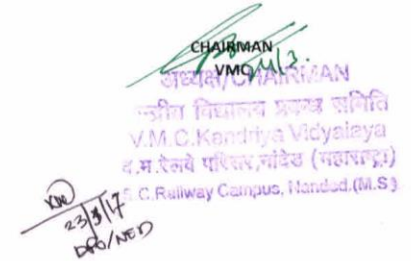 CHAIRMAN
VMC
अध्यक्ष/CHAIRMAN
विद्यालय प्रबन्ध समिति
V.M.C. Kendriya Vidyalaya
द.म.रेलवे परिसर,नांदेड (महाराष्ट्र)
S.C.Railway Campus, Nanded.(M.S)
23/3/17
DPO/NED